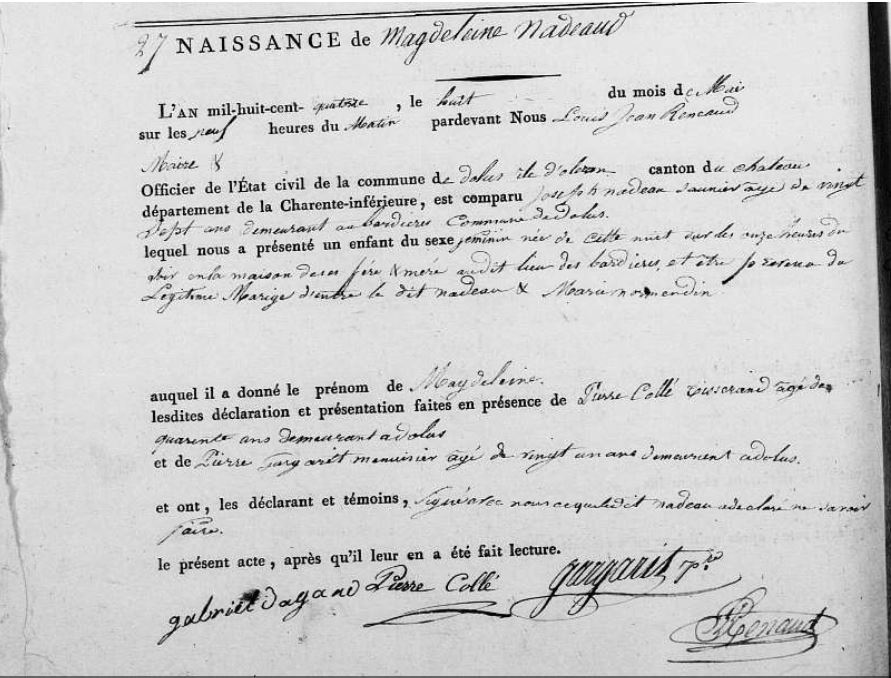 27 NAISSANCE de Magdeleine Nadeaud
L'AN mil-huit-cent- quatorze , le huit du mois de Mai
sur les neuf heures du Matin pardevant Nous Louis Jean Renaud
Maire &
Officier de l'État civil de la commune de dolus île d'oleron canton du chateau
département de la Charente-inférieure, est comparu Joseph nadeau saunier agé de vingt
sept ans demeurant au bardieres Commune de dolus.
lequel nous a présenté un enfant du sexe feminin née de cette nuit sur les onze heures du
soir en la maison de ses pére & mére audit lieu des bardieres, et être provenu du
Legitime Marige d'entre le dit nadeau & Marie normendin
auquel il a donné le prénom de Magdeleine.
lesdites déclaration et présentation faites en présence de Pierre Collé tisserand agé de
quarente ans demeurant a dolus
et de Pierre gargarit menuisier agé de vingt un ans demeurent a dolus.
et ont, les déclarant et témoins, signé avec nous ce que ledit nadeau a declaré ne savoir
faire.
le présent acte, après qu'il leur en a été fait lecture.
gabriel dagand Pierre Collé gargarit
Renaud